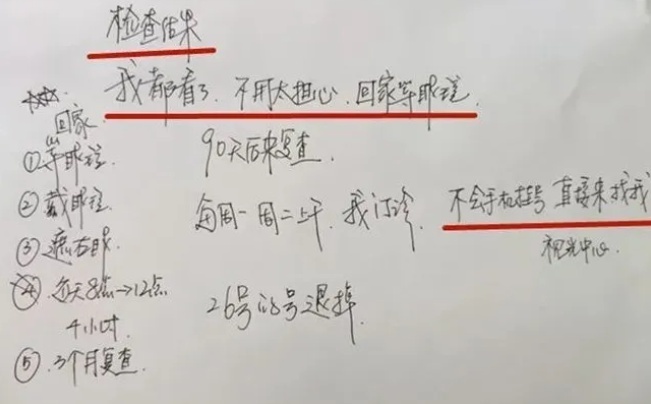 检查结果
我都看了.不用太担心.回家等眼镜.
回家
①等眼镜.
②戴眼镜.
③遮右眼.
④.每天8点→12点
4小时.
⑤.3个月复查.
90天后来复查.
每周一周二上午.我门诊.
不会手机挂号 直接来找我
视光中心.
26号的号退掉.